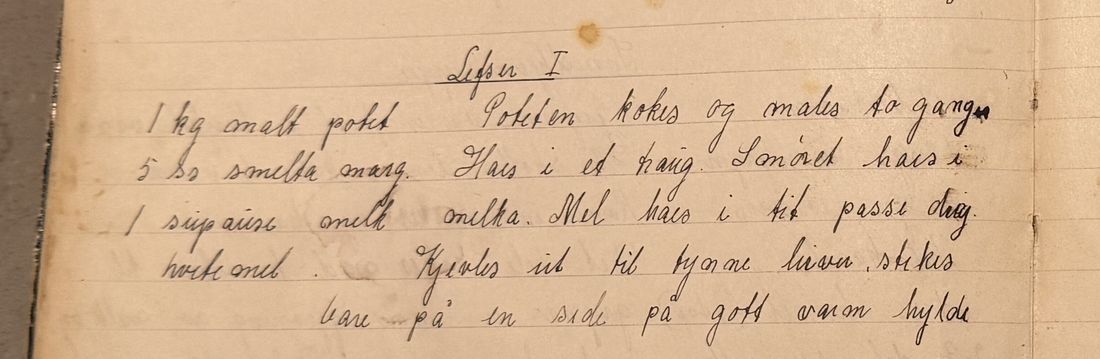 Lefser I
1 kg malt potet Poteten kokes og males to ganger
5 ss smelta marg. Haes i et traug. Smöret haes i
1 supause melk melka. Mel haes i tit passe deig.
hvetemel . Kjevles ut til tynne leiver, stekes
bare på en side på gott varm hylde